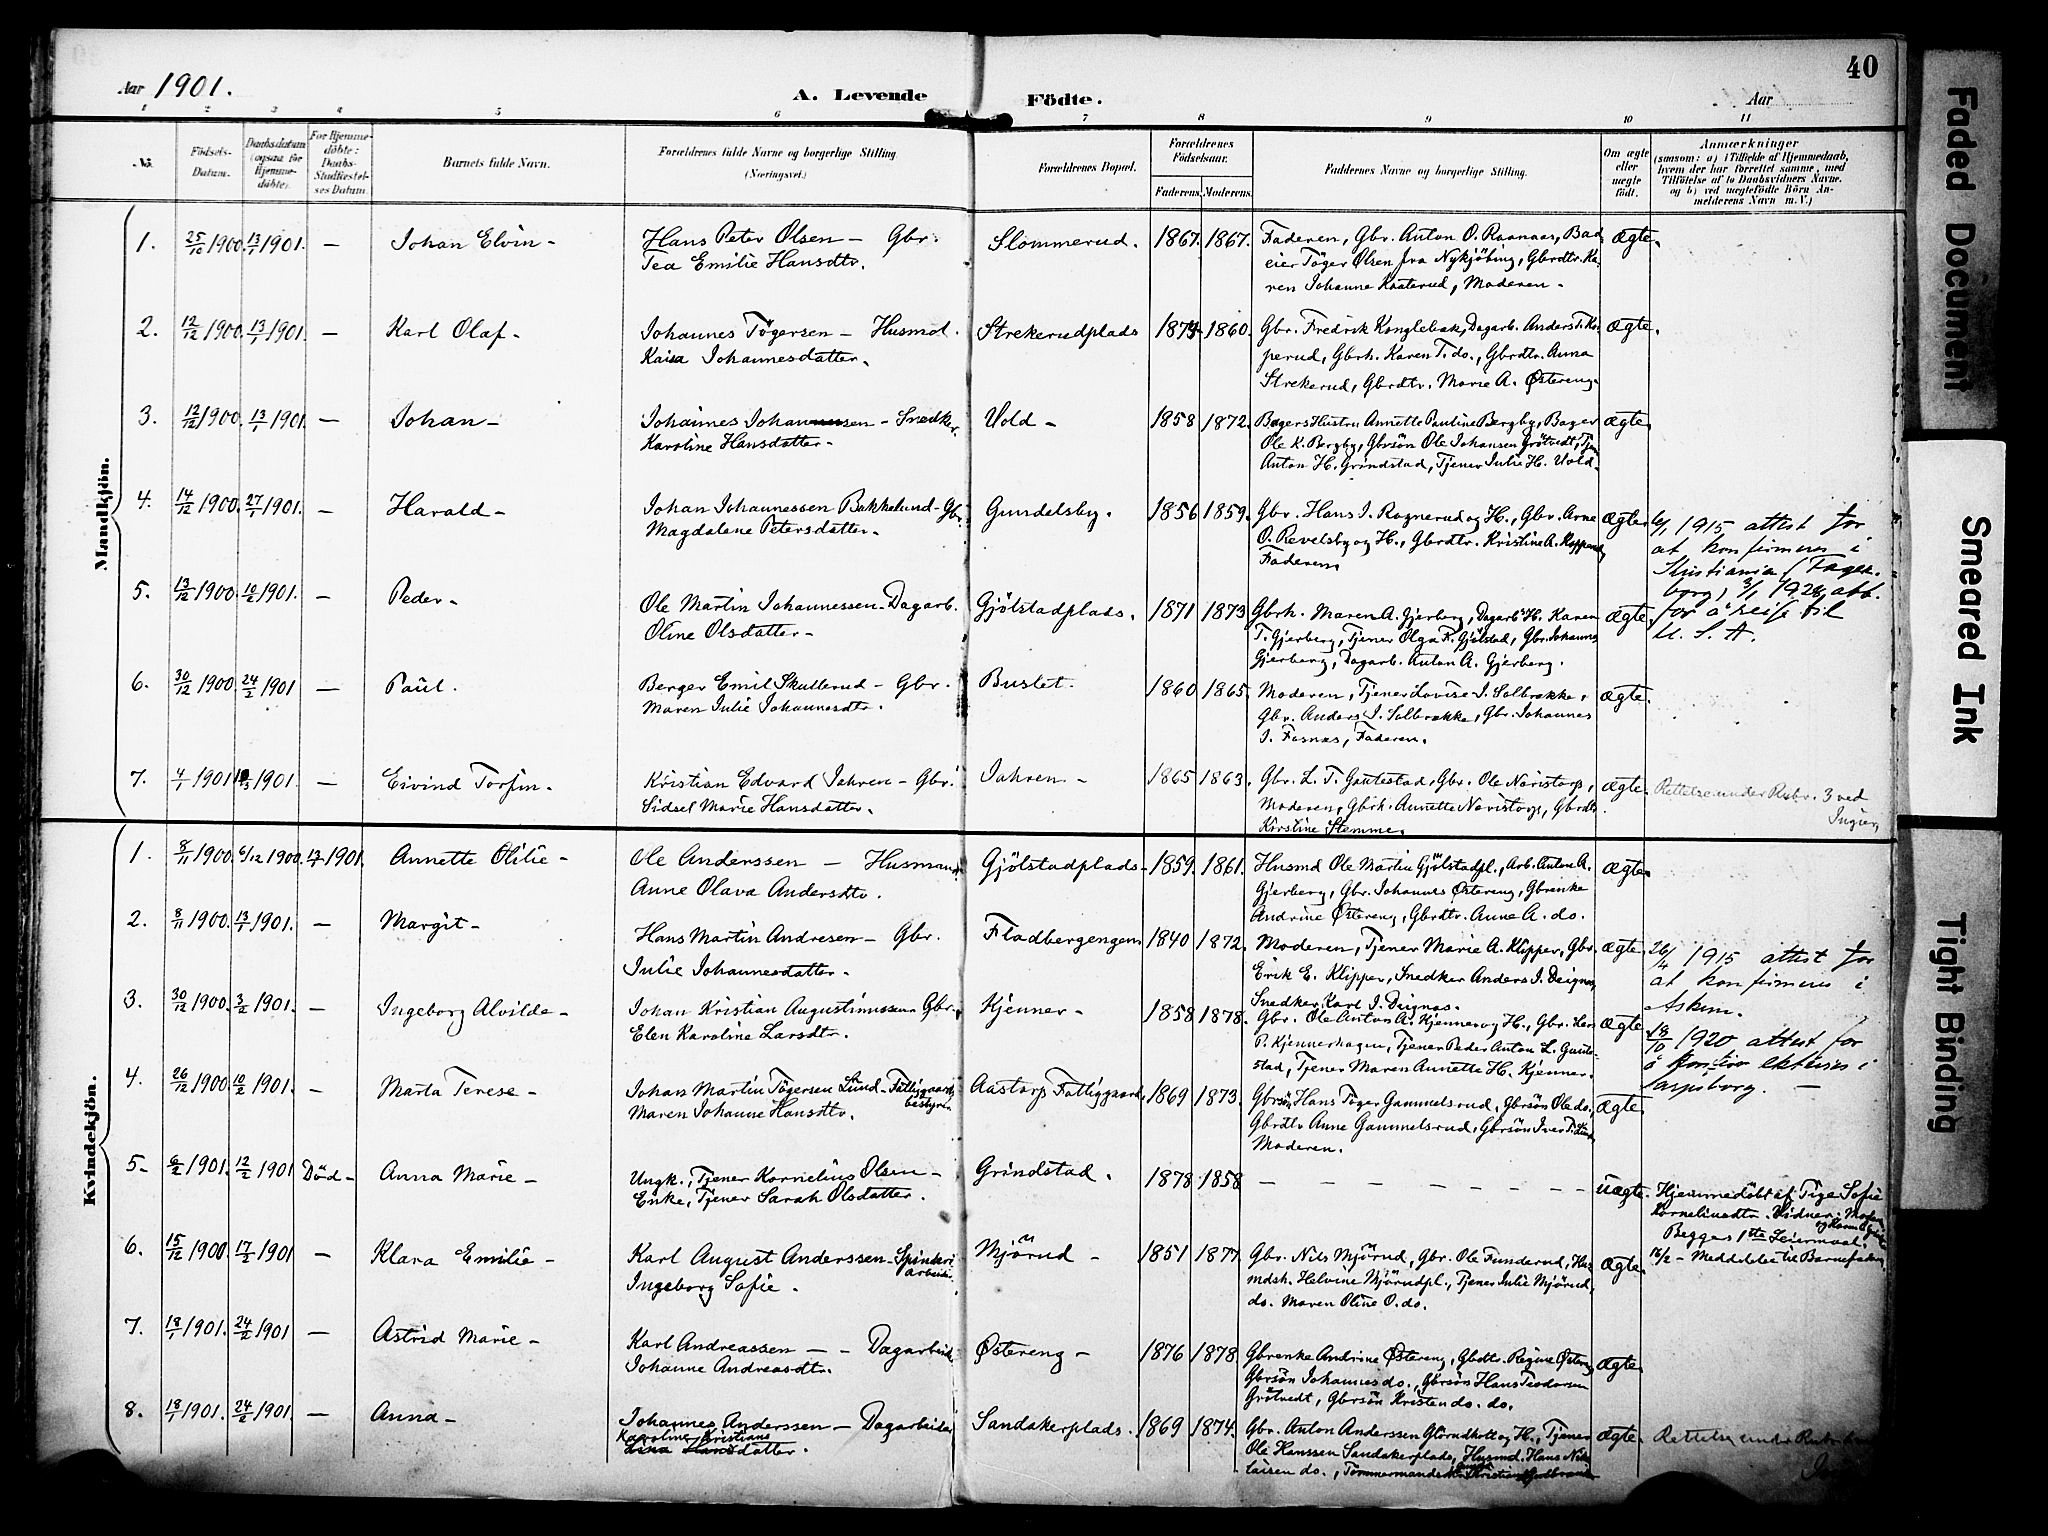 Aar 1901.
A. Levende Födte.
Aar
40
1 2 3 4 5 6 7 8 9 10 11
No. Födsels-Datum. Daabsdatum (ogsaa for Hjemmedöbte). For Hjemmedöbte: Daabs-Stadfæstelses Datum. Barnets fulde Navn. Forældrenes fulde Navne og borgerlige Stilling (Næringsvei.) Forældrenes Bopæl. Forældrenes Födselsaar. Faderens. Moderens. Faddernes Navne og borgerlige Stilling. Om ægte eller uægte födt. Anmærkninger
(saasom: a) i Tilfælde af Hjemmedaab, hvem der har forrettet samme, med Tilföielse af to Daabsvidners Navne. og b) ved uægtefödte Börn Anmelderens Navn m. V.)
Mandkjön.
1. 25/10 1900. 13/1 1901. — Johan Elvin — Hans Peter Olsen — Gbr. Slommerud. 1867. 1867. Faderen, Gbr. Anton O. Raanaas, Bad- ægte.
Tea Emilie Hansdtr. eier Töger Olsen fra Nykjöbing, Gbrdtr. Ka-
ren Johanne Kaaterud, Moderen.
2. 12/12 1900. 13/1 1901. — Karl Olaf — Johannes Tögersen — Husmd. Strekerudplads 1874 1860. Gbr. Fredrik Konglebæk, Dagarb. Anders T. Ko- ægte.
Kaisa Johannesdatter. perud, Gbrh. Karen T. do., Gbrdtr. Anna
Strekerud, Gbrdtr. Marie A. Østereng.
3. 12/12 1900. 13/1 1901. — Johan — Johannes Johannessen — Snedker Vold — 1858 1872. Bagers Hustru Annette Pauline Bergby, Bager ægte.
Karoline Hansdatter — Ole K. Bergby, Gbrsön Ole Johansen Grötvedt, Tjen
Anton H. Grindstad, Tjener Julie H. Vold.
4. 14/12 1900. 27/1 1901. — Harald — Johan Johannessen Bakkelund — Gbr. Gundelsby. 1856 1859. Gbr. Hans J. Rognerud og H., Gbr. Arne ægte 1915 attest for
Magdalene Petersdatter — O. Revelsby og H., Gbrdtr. Kristine A. at konfirmeres i
Faderen. Kristiania (Fager-
borg, 3/1 1928 att.
5. 13/12 1900. 10/2 1901. — Peder — Ole Martin Johannessen — Dagarb. Gjölstadplads. 1871 1873 Gbrh. Maren A. Gjerberg, Dagarb. H. Karen ægte. for å reise til
Oline Olsdatter — T. Gjerberg, Tjener Olga K. Gjölstad, Gbr. Johannes U. S. A.
Gjerberg, Dagarb. Anton A. Gjerberg.
6. 30/12 1900. 24/2 1901 — Paul. Berger Emil Skullerud — Gbr. Bustet. 1860 1865. Moderen, Tjener Lovise J. Solbrække, ægte.
Maren Julie Johannesdtr. Gbr. Anders J. Solbrække, Gbr. Johannes
J. Fosnæs, Faderen.
7. 4/1 1901 1901. — Eivind Torfin — Kristian Edvard Jahren — Gbr. Jahren — 1865 1863. Gbr. L. T. Gautestad, Gbr. Ole Naristorp, ægte. Rettelse under Rubr. 3 ved
Sidsel Marie Hansdatter. Moderen, Gbrh. Annette Naristorp, Gbrdtr.
Kirstine Stemme.
Kvindekjön.
1. 8/11 1900. 6/12 1900. 1901. Annette Otilie — Ole Anderssen — Husmand Gjölstadplads — 1859. 1861. Husmd Ole Martin Gjölstadpl., Arb. Anton A. ægte
Anne Olava Andersdtr. Gjerberg, Gbr. Johannes Østereng, Gbrenke
Andrine Østereng, Gbrdtr. Anne A. do.
2. 8/11 1900. 13/1 1901. — Margit — Hans Martin Andresen — Gbr. Fladbergengen 1840 1872. Moderen, Tjener Marie A. Klipper, Gbr. ægte. 26/4 1915 attest for
Julie Johannesdatter. Erik E. Klipper, Snedker Anders J. Deignæs, at konfirmeres i
Snedker Karl J. Deignæs. Askim.
3. 30/12 1900. 3/2 1901. — Ingeborg Alvilde — Johan Kristian Augustinussen — Gbr. Kjenner — 1858 1878. Gbr. Ole Anton A. Kjenner og H., Gbr. Lars ægte. 18/10 1920 attest for
Elen Karoline Larsdtr. P. Kjennerhagen, Tjener Peder Anton L. Gaute- å
stad, Tjener Maren Annette H. Kjenner. Sarpsborg. —
4. 26/12 1900. 10/2 1901. — Marta Terese — Johan Martin Tögersen Lund — Fattiggaards- bestyrer Aastorp Fattiggaard. 1869 1873. Gbrsön Hans Töger Gammelsrud, Gbrsön Ole do., ægte.
Maren Johanne Hansdtr. Gbrdtr. Anne Gammelsrud, Gbrsön Iver T.
Moderen.
5 — 6/2 1901. 12/2 1901 Död — Anna Marie — Ungk., Tjener Kornelius Olsen — Grindstad. 1878 1858 — — — — — — — uægte. Hjemmedöbt af Pige Sofie
Enke, Tjener Sarah Olsdatter. Korneliusdtr. Vidner:
Begges 1ste Leiermaal.
16/2 — Meddelelse til Barnefaderen
6. 15/12 1900 17/2 1901 — Klara Emilie — Karl August Anderssen — Spinderi- arbeider Mjørud — 1851 1877. Gbr. Nils Mjørud, Gbr. Ole Funderud, Hus- ægte.
Ingeborg Sofie. mdsh. Helvine Mjørudpl., Tjener Julie Mjørud,
do. Maren Oline O. do.
7. 18/1 1901. 24/2 1901 — Astrid Marie — Karl Andreassen — Dagarbeider Østereng — 1876 1878. Gbrenke Andrine Østereng, Gbrdtr. Regine Østereng ægte.
Johanne Andreasdtr. Gbrsön Johannes do., Gbrsön Hans Teodorsen
Grötvedt, Gbrsön Kristen do. do.
8. 18/1 1901. 24/2 1901. — Anna — Johannes Anderssen — Dagarbeider Sandakerplads. 1869 1874. Gbr. Anton Anderssen og H., Tjener ægte. Rettelse under Rubr.
Karoline Kristians Ole Hanssen Sandakerplads, Husmd. Hans Nik-
Lina Hansdatter. laisen do., Tömmermands
Faded Document
Smeared Ink
Tight Binding